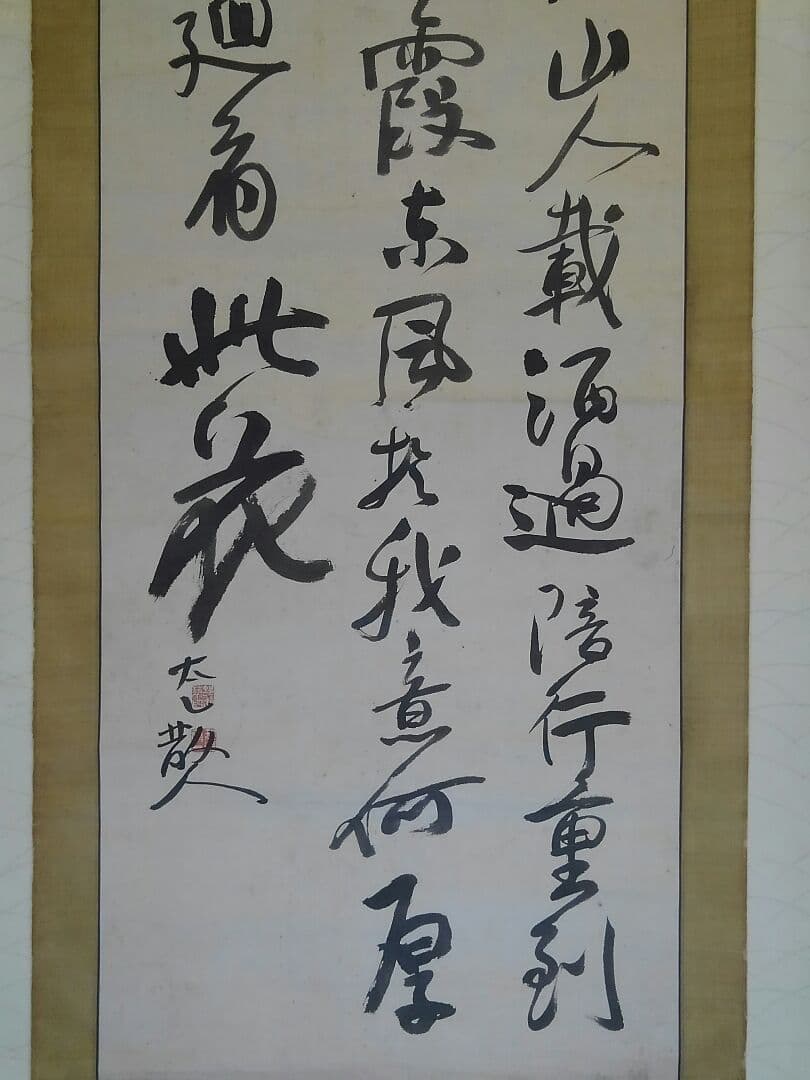 山人載酒過陪行重到
霞東風於我意何厚
廻看此花
散人